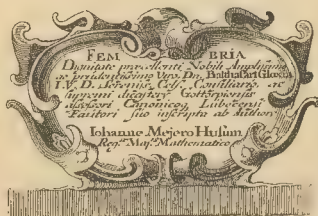 FEMBRIA
Dignitate præcellenti Nobili Amplissimo
ac prudentissimo Viro, Dn. Balthasari
I.V.D. Sereniss. Cels. Consiliario, ac
supremi Dicasterii Gottorpiensis
Assessori Canonicoq. Lubecensi
Fautori suo inscripta ab Authore
Iohanne Mejero Husum
Reg. Maj. Mathematico